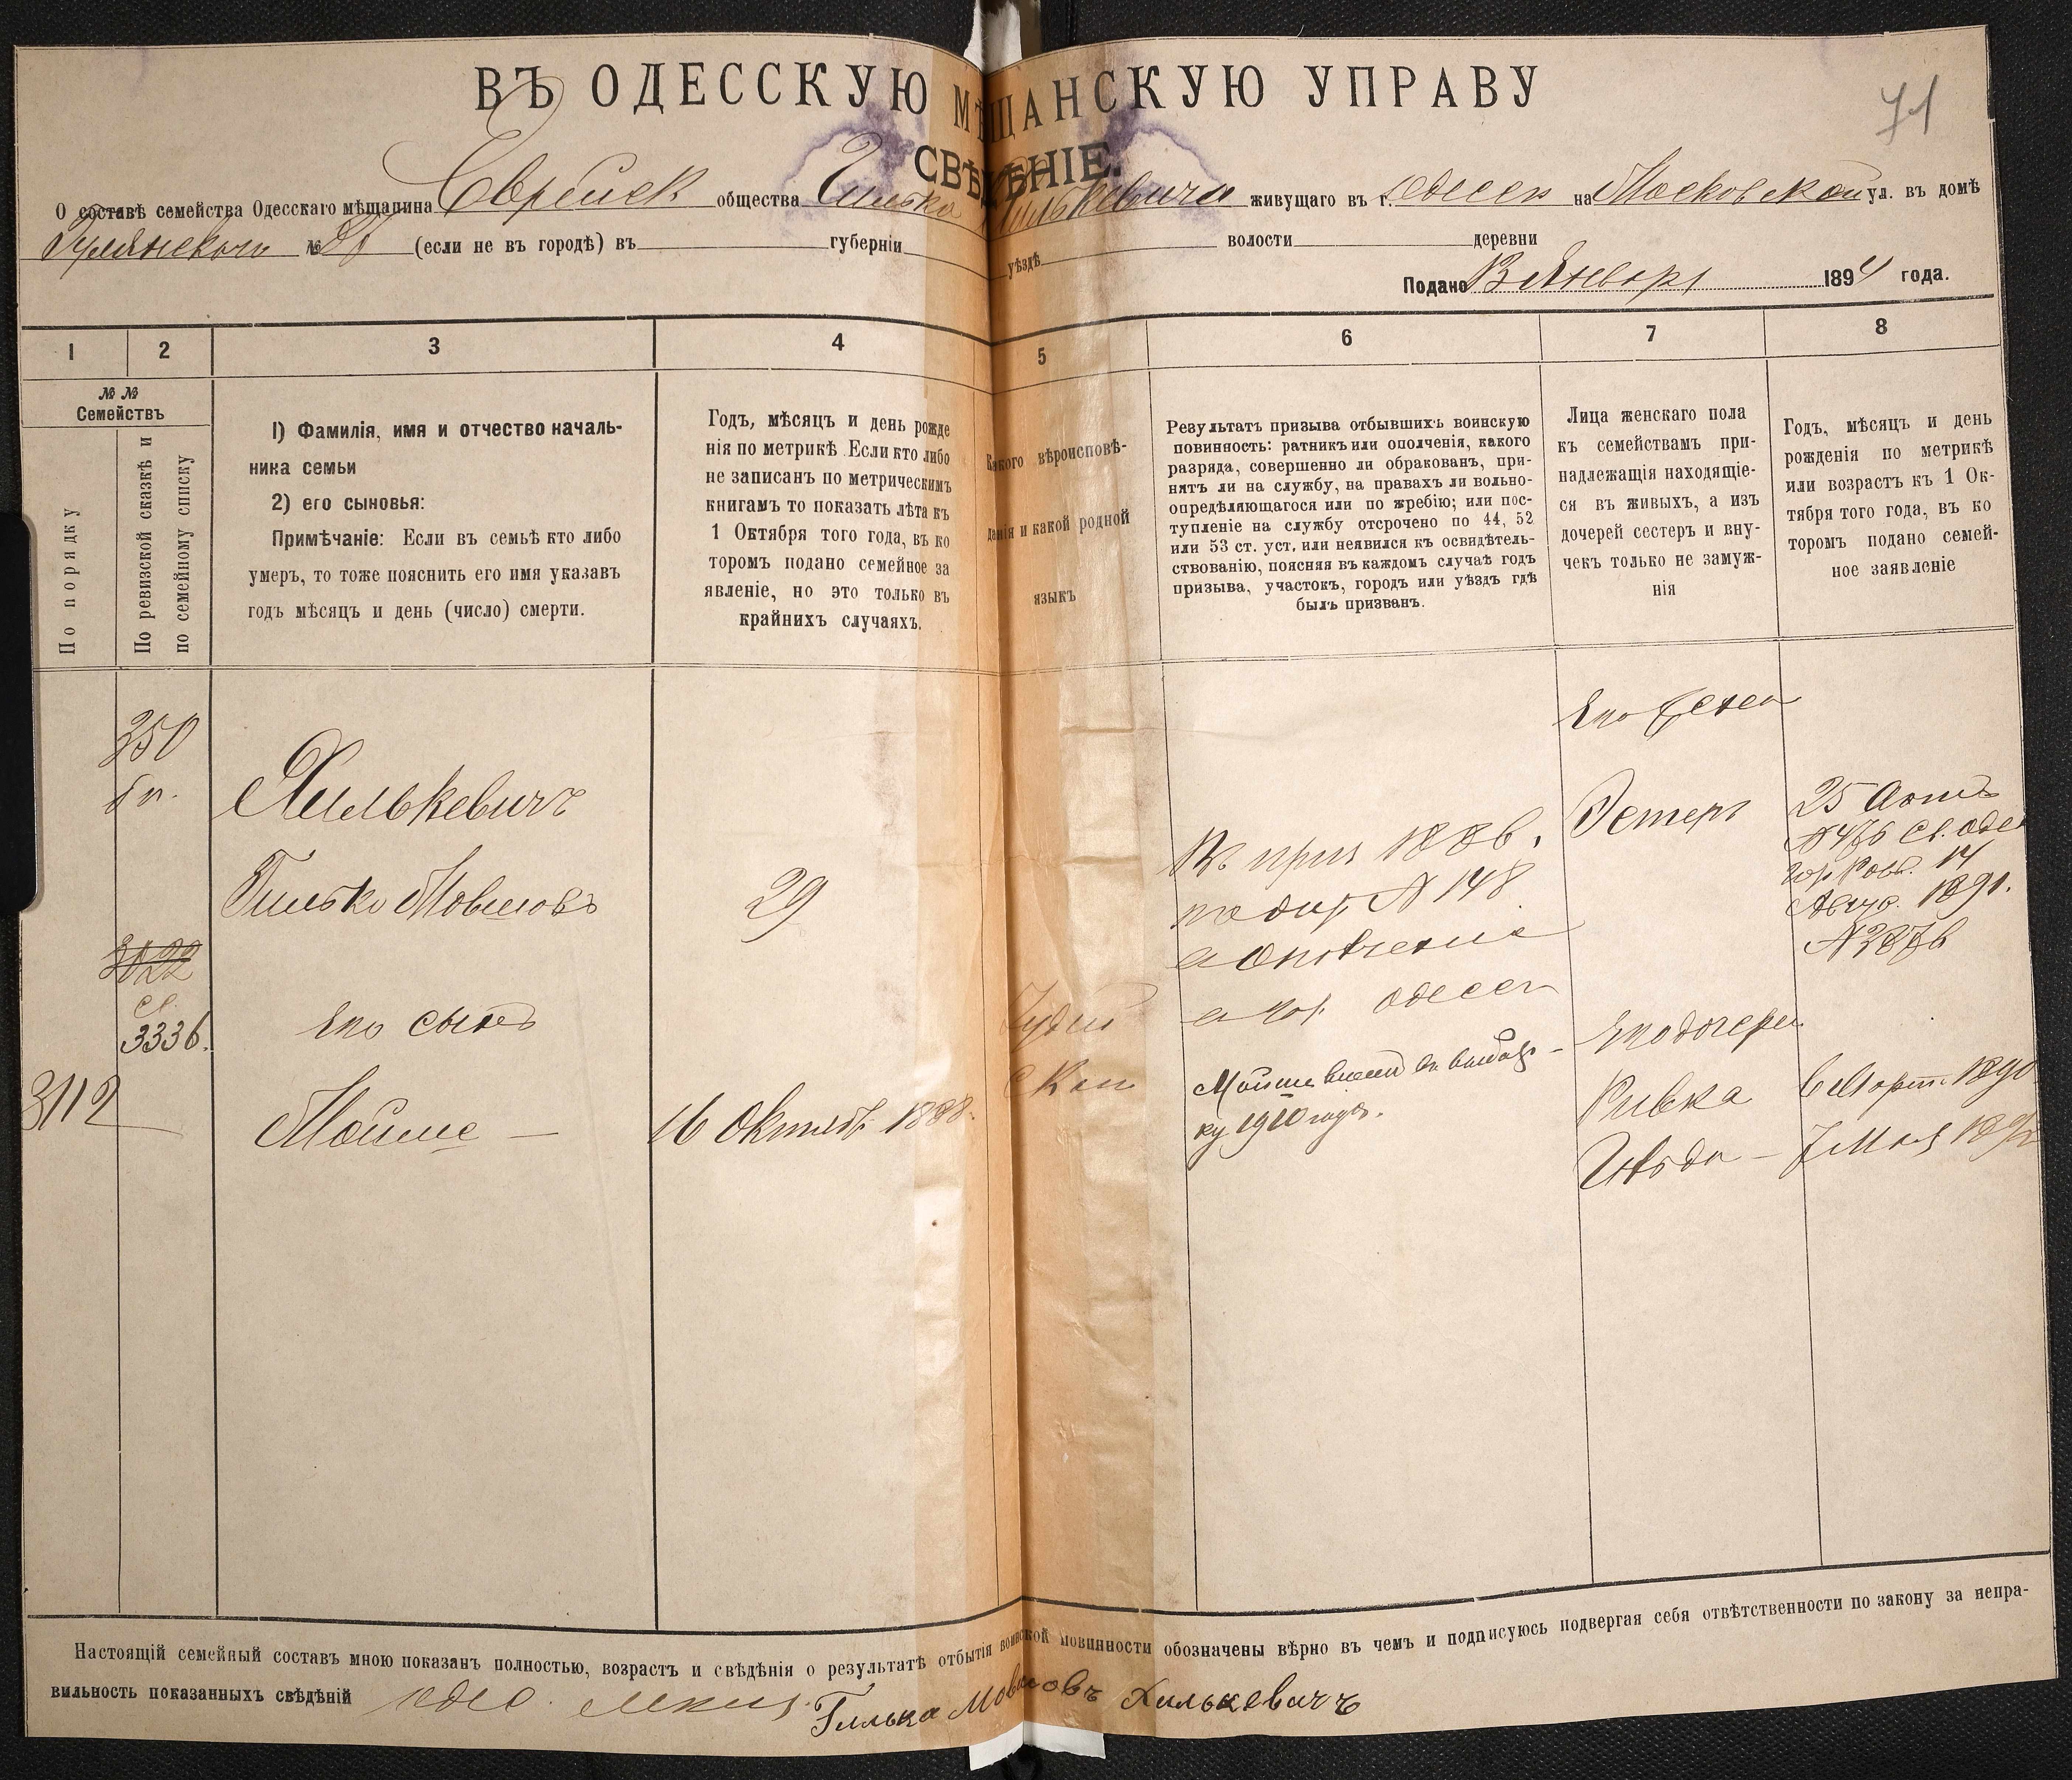 ВЪ ОДЕССКУЮ МѢЩАНСКУЮ УПРАВУ
71
СВѢДѢНІЕ.
О составѣ семейства Одесскаго мѣщанина Еврейск общества Гилька Хилькевича живущаго въ г. Одессе на Московской ул. въ домѣ
№ (если не въ городѣ) въ губерніи уѣздѣ волости деревни
Подано Январ 1894 года.
1 2 3 4 5 6 7 8
№ № Семействъ
По порядку
По ревизской сказкѣ и по семейному списку
1) Фамилія, имя и отчество началь-
ника семьи
2) его сыновья:
Примѣчаніе: Если въ семьѣ кто либо
умеръ, то тоже пояснить его имя указавъ
годъ мѣсяцъ и день (число) смерти.
Годъ, мѣсяцъ и день рожде
нія по метрикѣ Если кто либо
не записанъ по метрическимъ
книгамъ то показать лѣта къ
1 Октября того года, въ ко
торомъ подано семейное за
явленіе, но это только въ
крайнихъ случаяхъ.
Какого вѣроисповѣ-
данія и какой родной
языкъ
Результатъ призыва отбывшихъ воинскую
повинность: ратникъ или ополченія, какого
разряда, совершенно ли обракованъ, при-
нятъ ли на службу, на правахъ ли вольно-
опредѣляющагося или по жребію; или пос-
тупленіе на службу отсрочено по 44, 52
или 53 ст. уст. или неявился къ освидѣтель-
ствованію, поясняя въ каждомъ случаѣ годъ
призыва, участокъ, городъ или уѣздъ гдѣ
былъ призванъ.
Лица женскаго пола
къ семействамъ при-
надлежащія находящіе-
ся въ живыхъ, а изъ
дочерей сестеръ и вну-
чекъ только не замуж-
нія
Годъ, мѣсяцъ и день
рожденія по метрикѣ
или возрастъ къ 1 Ок-
тября того года, въ ко
торомъ подано семей-
ное заявленіе
Его жена
250
Хилькевичъ
Эстеръ
25
Къ приз 1886.
Гилько Мовшовъ
29
№ 148
14
1891.
№ 3876
3022
св.
3336.
Его сынъ
Іудей
ской
Одессе
Его дочери
3112
Мойше —
16 Октябр 1888.
Мойше внесен въ
ку 1910 года.
Ривка
6 Март. 1890
7 Мая
Настоящій семейный составъ мною показанъ полностью, возрастъ и свѣдѣнія о результатѣ отбытія воинской повинности обозначены вѣрно въ чемъ и подписуюсь подвергая себя отвѣтственности по закону за непра-
вильность показанныхъ свѣдѣній Гилька Мовшовъ Хилькевичъ